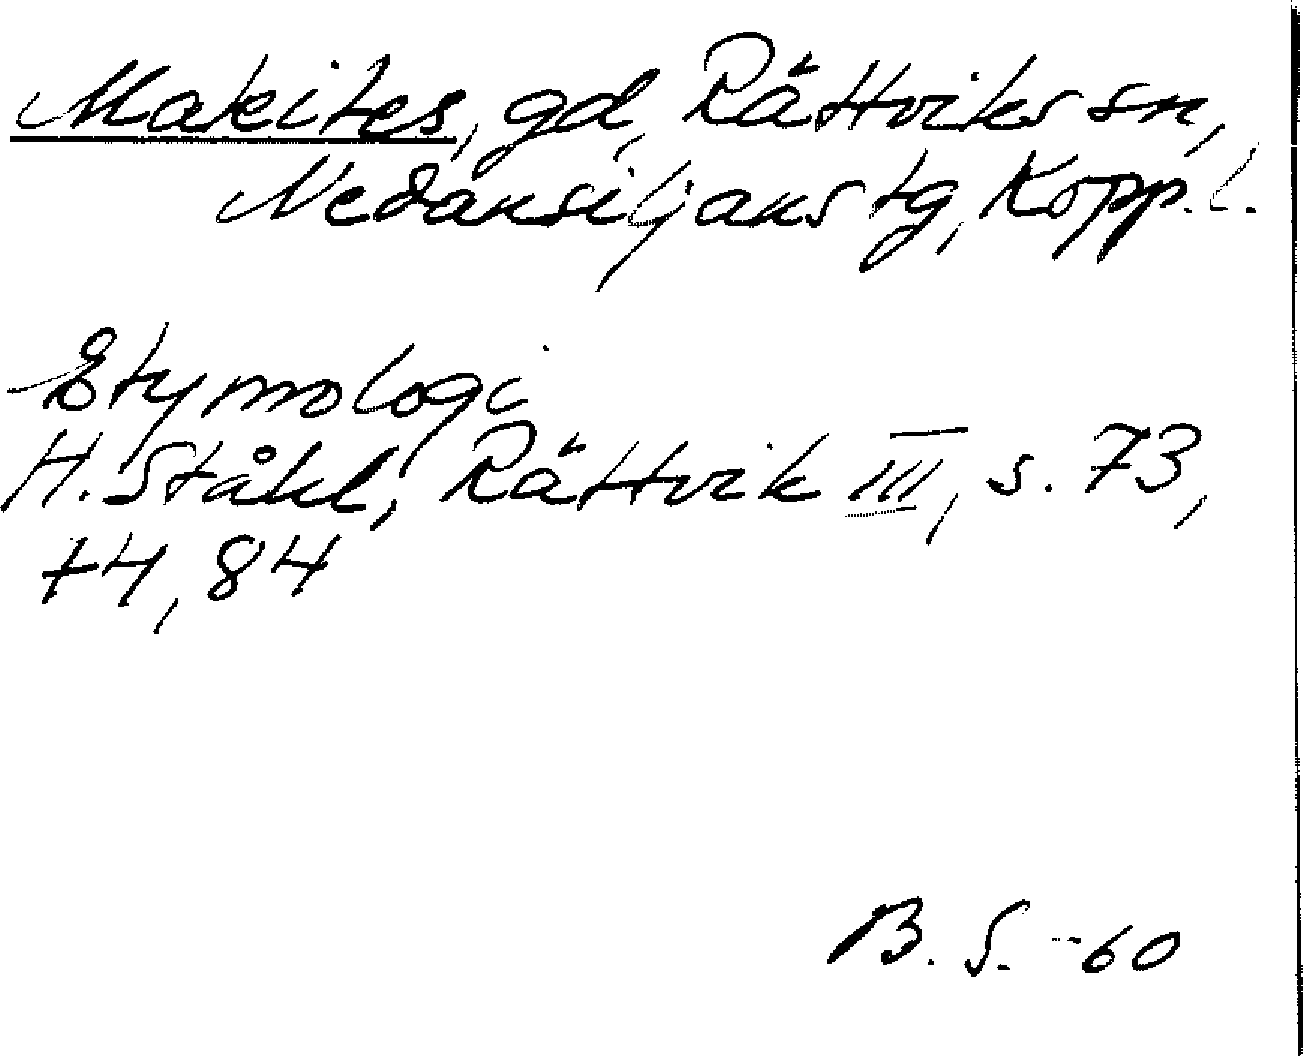 Makites, gd, Rättviks sn,
Nedansiljans tg, Kopp. l.
Etymologi
H. Ståhl, Rättvik III, s. 73,
74, 84
B. S. -60